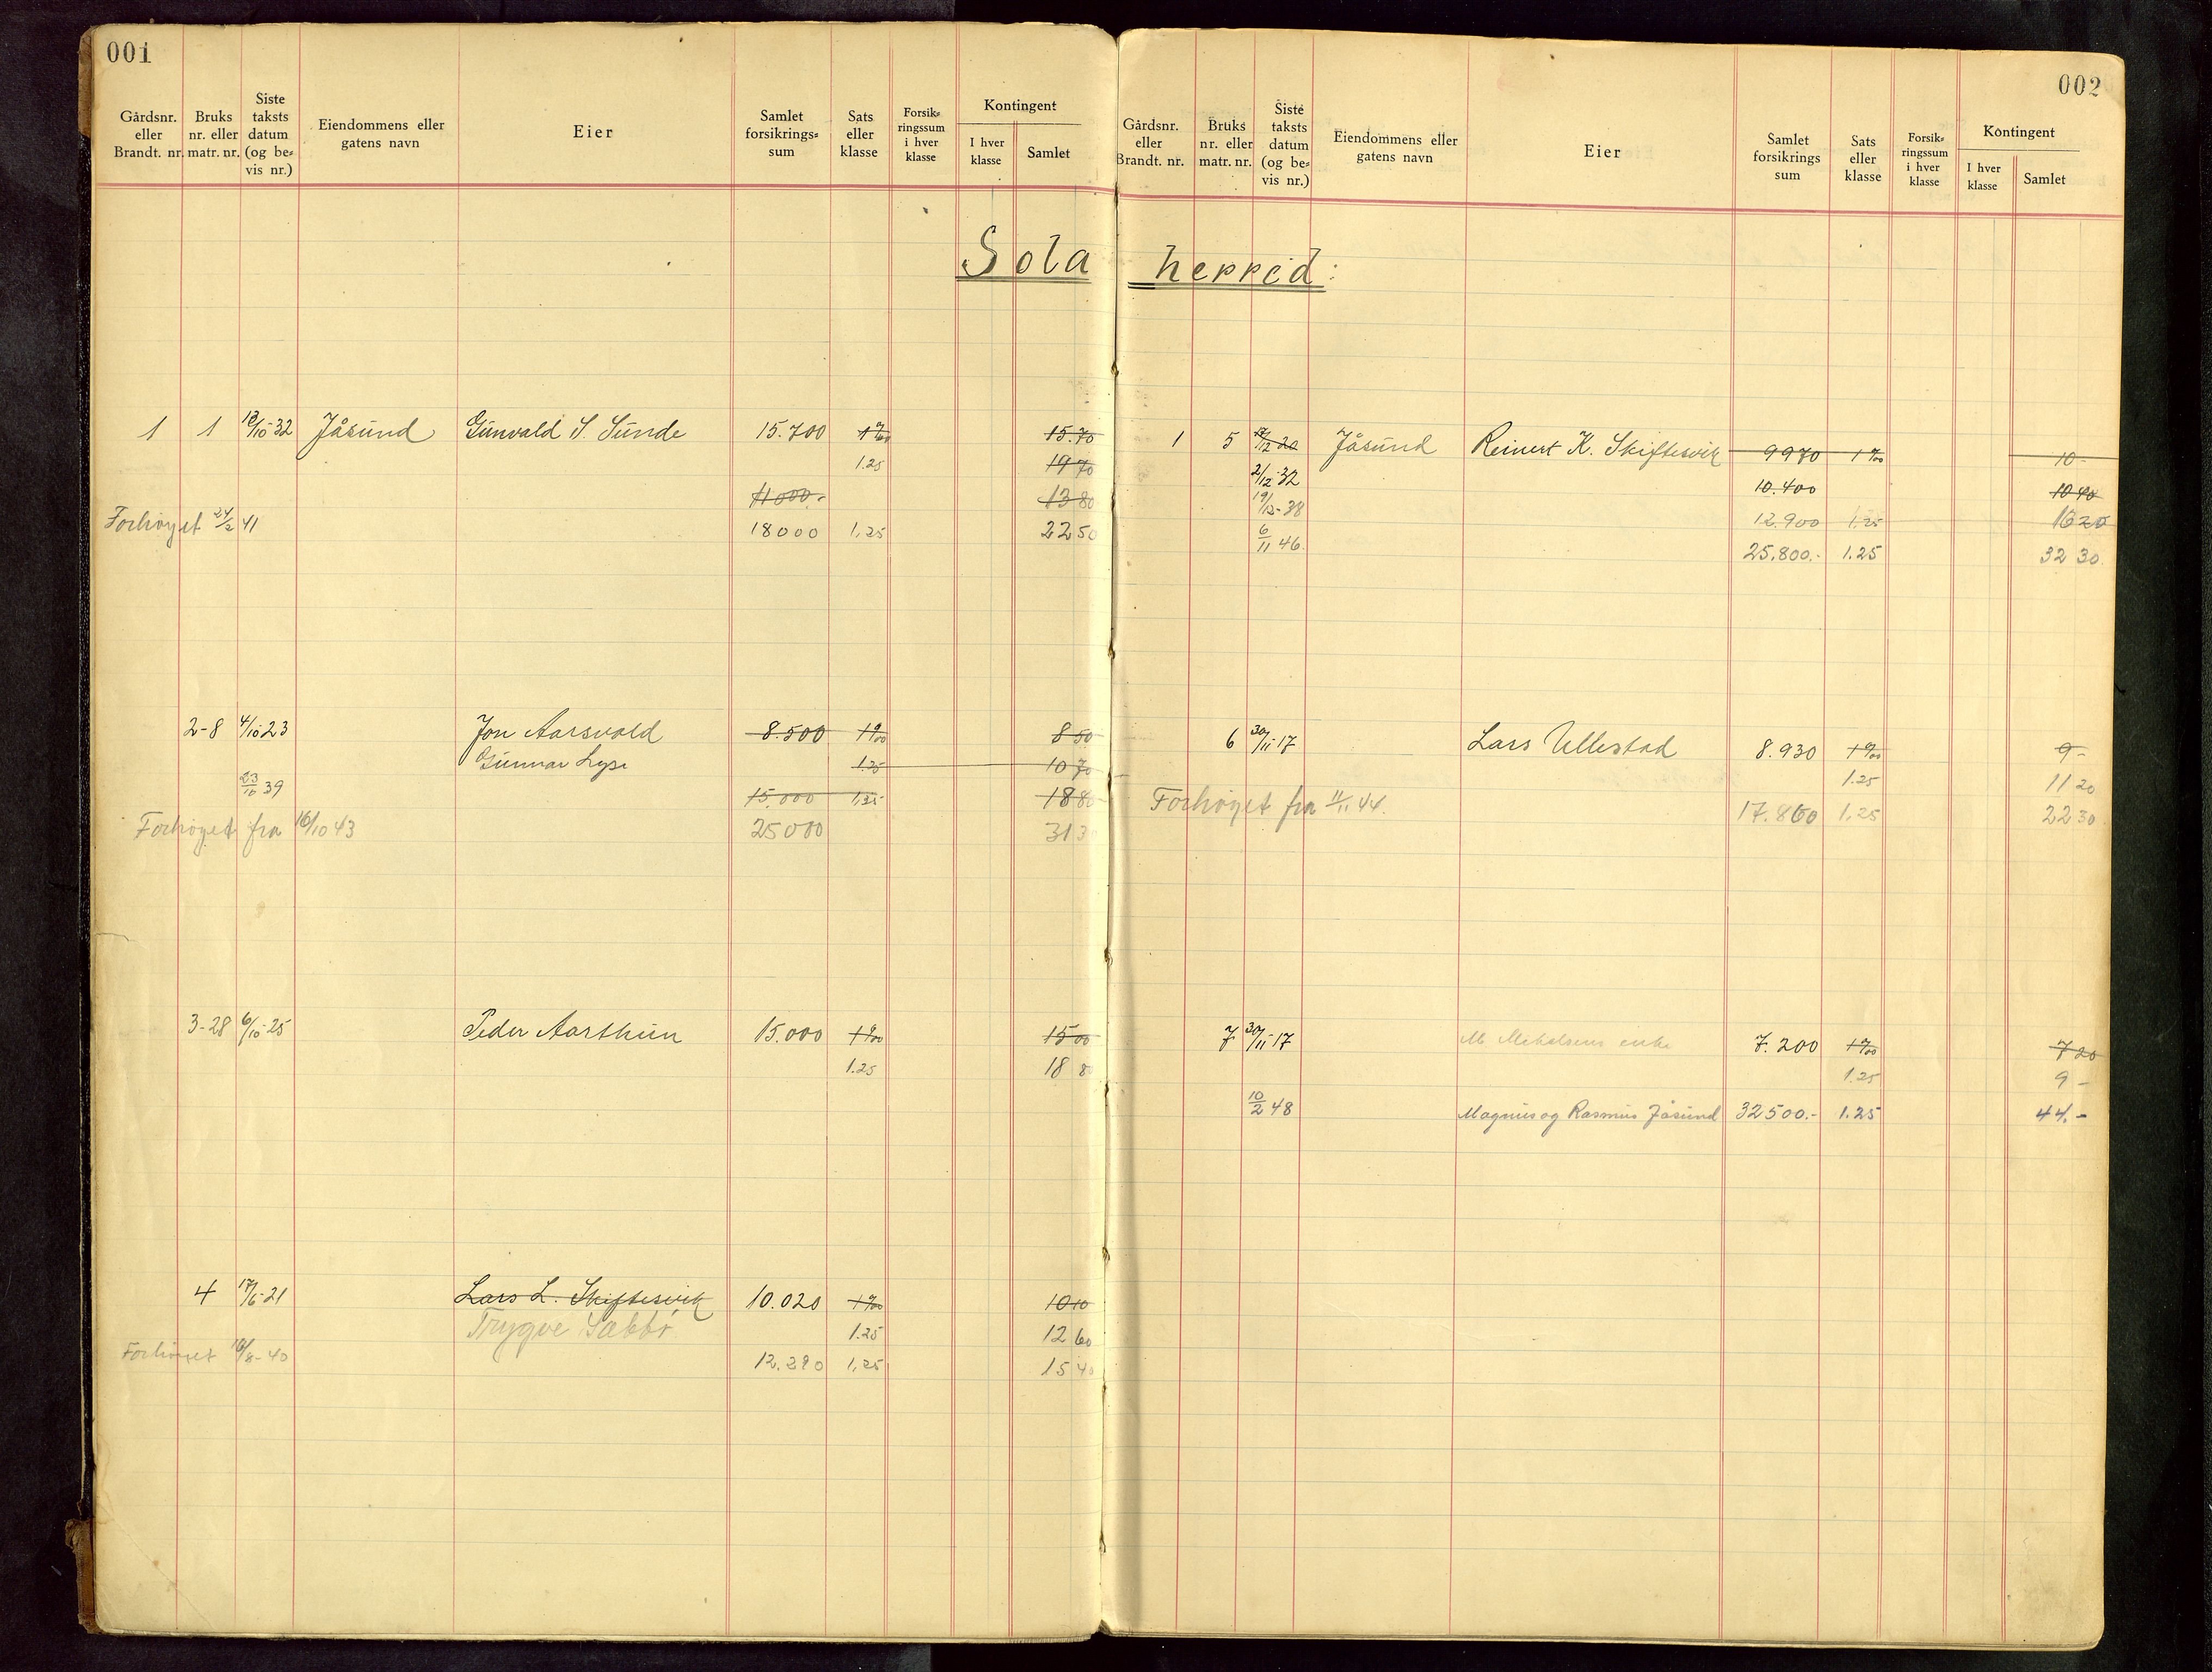 001
Gårdsnr. eller Brandt. nr. Bruks nr. eller matr. nr. Siste taksts datum (og be= vis nr.) Eiendommens eller gatens navn Eier Samlet forsikrings= sum Sats eller klasse Forsik= ringssum i hver klasse Kontingent I hver klasse Samlet
Sola
1 1 13/10-32 Jåsund Gunvald S. Sunde 15.700 1 ‰ 15.70
1.25 19 70
11 000.- 13 80
Forhøyet 24/2 41 18000 1,25 22 50
2-8 4/10-23 Jon Aarsvold 8.500 1 ‰ 8 50
Gunnar Lyse 1.25 10 70
23/10 39 15.000 1,25 18 80
Forhøyet fra 16/10 43 25000 31 3
3-28 6/10-25 Peder Aarthun 15.000 1 ‰ 15 00
1.25 18 8
4 17/6-21 Lars L. Skiftesvik 10.020 1 ‰ 10 10
Trygve 1.25 12 60
Forhøyet 16/8-40 12.290 1,25 15 40
002
Gårdsnr. eller Brandt. nr. Bruks nr. eller matr. nr. Siste taksts datum (og be= vis nr.) Eiendommens eller gatens navn Eier Samlet forsikrings sum Sats eller klasse Forsik= ringssum i hver klasse Kontingent I hver klasse Samlet
herred:
1 5 /12-20 Jåsund Reinert K. Skiftesvik 9970 1 ‰ 10-
2/12-32 10.400 10 40
19/12-38 12.900 1.25 16 20
6/11 46. 25.800.- 1.25 32 30
6 30/11-17 Lars Ullestad 8.930 1 ‰ 9-
1.25 11 20
Forhøyet fra 11/11 44. 17.860 1,25 22 30
7 30/11-17 M. enke 7.200 1 ‰ 7 20
1.25 9-
10/2 48 Magnus og Rasmus Jåsund 32500.- 1.25 44.-